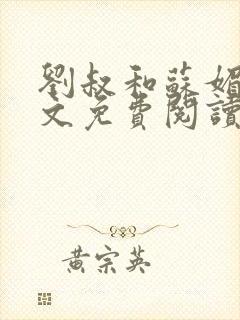 劉叔和蘇媚
文免費閱讀
黃宗英